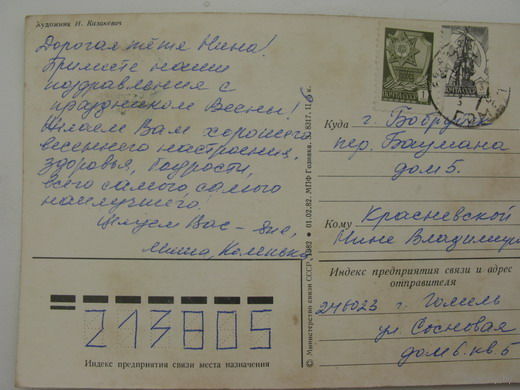 Художник И. Казакевич
Дорогая тётя Нина!
Примите наши
поздравления с
праздником Весны!
Желаем Вам хорошего
весеннего настроения,
здоровья, бодрости,
всего самого, самого
наилучшего!
Целуем Вас –
Миша, Коленька
© Министерство связи СССР, 1982 ● 01.02.82. МПФ Гознака.
Куда г. Бобруйск
пер. Баумана
дом 5.
Кому Красневской
Нине Владимир
Индекс предприятия связи и адрес
отправителя
246023 г. Гомель
ул. Сосновая
дом 6. кв. 5
213805
Индекс предприятия связи места назначения